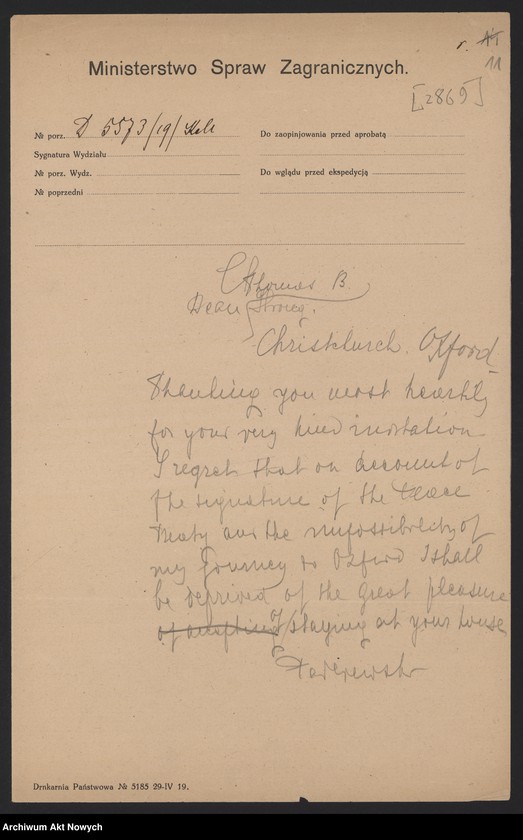 r. 11
11
Ministerstwo Spraw Zagranicznych.
[2869]
№ porz. D 5573/19/
Do zaopinjowania przed aprobatą
Sygnatura Wydziału
№ porz. Wydz.
Do wglądu przed ekspedycją
№ poprzedni
Thomas B.
Dean Strong.
Christchurch. Oxford
Thanking you most heartily
for your very kind invitation
I regret that on account of
the signature of the Peace
Treaty and the impossibility of
my journey to Oxford I shall
be deprived of the great pleasure
of accepting of staying at your house
Paderewski
Drukarnia Państwowa № 5185 29-IV 19.
Archiwum Akt Nowych